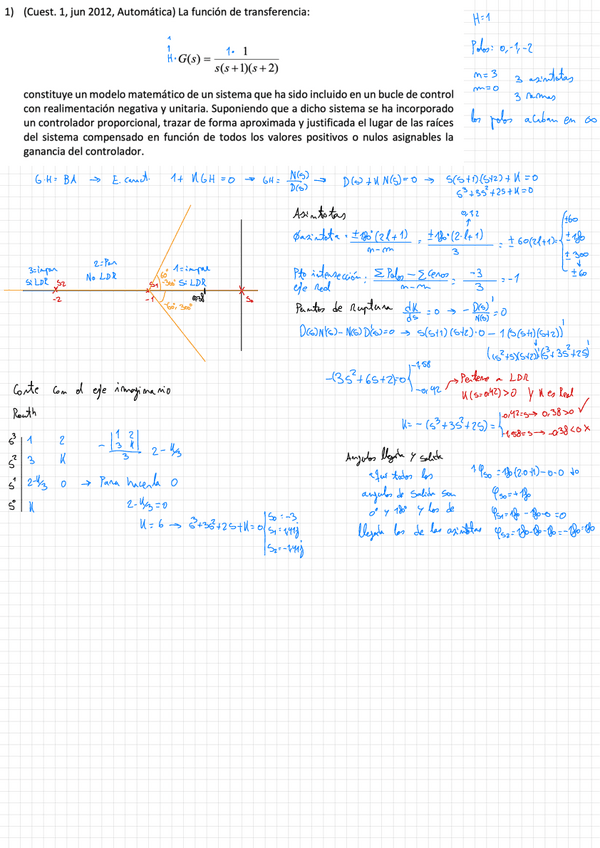 1) (Cuest. 1, jun 2012, Automática) La función de transferencia:
H=1
1
H · G(s) = 1· 1 / s(s+1)(s+2)
Polos: 0,-1,-2
n=3 3 asíntotas
m=0 3 ramas
los polos acaban en ∞
constituye un modelo matemático de un sistema que ha sido incluido en un bucle de control
con realimentación negativa y unitaria. Suponiendo que a dicho sistema se ha incorporado
un controlador proporcional, trazar de forma aproximada y justificada el lugar de las raíces
del sistema compensado en función de todos los valores positivos o nulos asignables la
ganancia del controlador.
G·H = BA → E. caract. 1+KGH=0 → GH = N(s)/D(s) → D(s)+KN(s)=0 → s(s+1)(s+2)+K=0
s³+3s²+2s+K=0
Asíntotas
0,1,2
Øasíntota = ±180°(2l+1)/n-m = ±180·(2·l+1)/3 = ±60(2l+1) = { ±60
±180
±300
↓
±60
3=impar
Sí LDR
S2
-2
2=Par
No LDR
S1
-1
60°
-300°
-60°, 300°
1=impar
Sí LDR
S0
Pto intersección: Σ Polos - Σ Ceros / n-m = -3/3 = -1
eje real
Puntos de Ruptura dK/ds = 0 → -D(s)'/N(s) = 0
D(s)N'(s)-N(s)D'(s)=0 → s(s+1)(s+2)·0 - 1(s(s+1)(s+2))'
((s²+s)(s+2))' (s³+3s²+2s)'
-(3s²+6s+2)=0 { -1,58
-0,42 → Pertenece a LDR
K(s=-0,42)>0 y K es Real
K = -(s³+3s²+2s) = { -0,42=s → 0,38>0 ✓
-1,58=s → -0,38<0 X
Corte con el eje imaginario
Routh
s³ | 1 2
s² | 3 K
s¹ | 2-K/3 0 → Para hacerla 0
s⁰ | K
- |1 2| |3 K| / 3 2-K/3
2-K/3=0
K=6 → s³+3s²+2s+K=0 | S0=-3
S1=1,41j
S2=-1,41j
Angulos llegada y salida
todos los
angulos de salida son
0° y 180° y los de
llegada los de las asíntotas
1φs0 = 180(2·0+1)-0-0
φs0=+180
φs1=180-180-0=0
φs2=180-180-180=-180=180